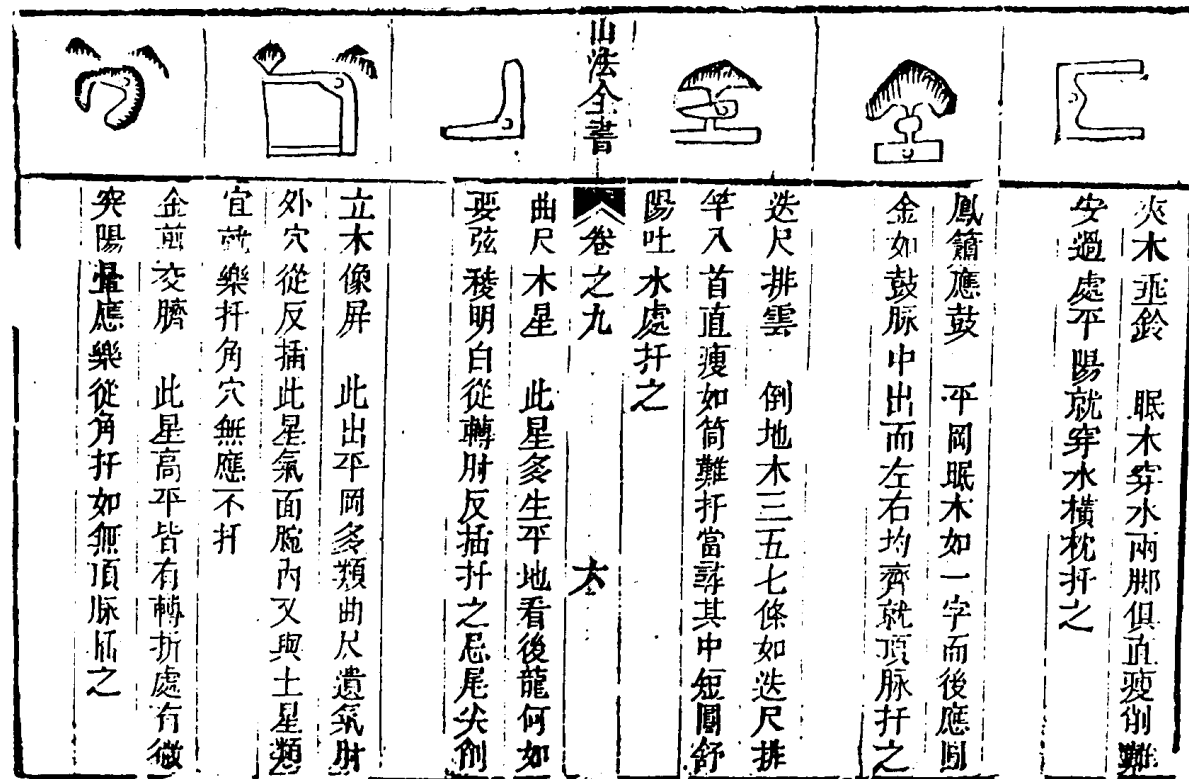 夾木垂鈴　眠木穿水兩脚俱直瘦削難
安過處平陽就穿水橫枕扦之
鳳簫應鼓　平岡眠木如一字而後應圓
金如鼓脉中出而左右均齊就頂脉扦之
迭尺排雲　倒地木三五七條如迭尺排
竿入首直瘦如筒難扦當尋其中短圓舒
陽吐水處扦之
山法全書　卷之九
曲尺木星　此星多生平地看後龍何如
要弦稜明白從轉肘反插扦之忌尾尖削
立木像屏　此出平岡多類曲尺遺氣肘
外穴從反插此星氣面腕內又與土星類
宜就樂扦角穴無應不扦
金剪交臍　此星高平皆有轉折處有微
突陽暈應樂從角扦如無頂脉插之